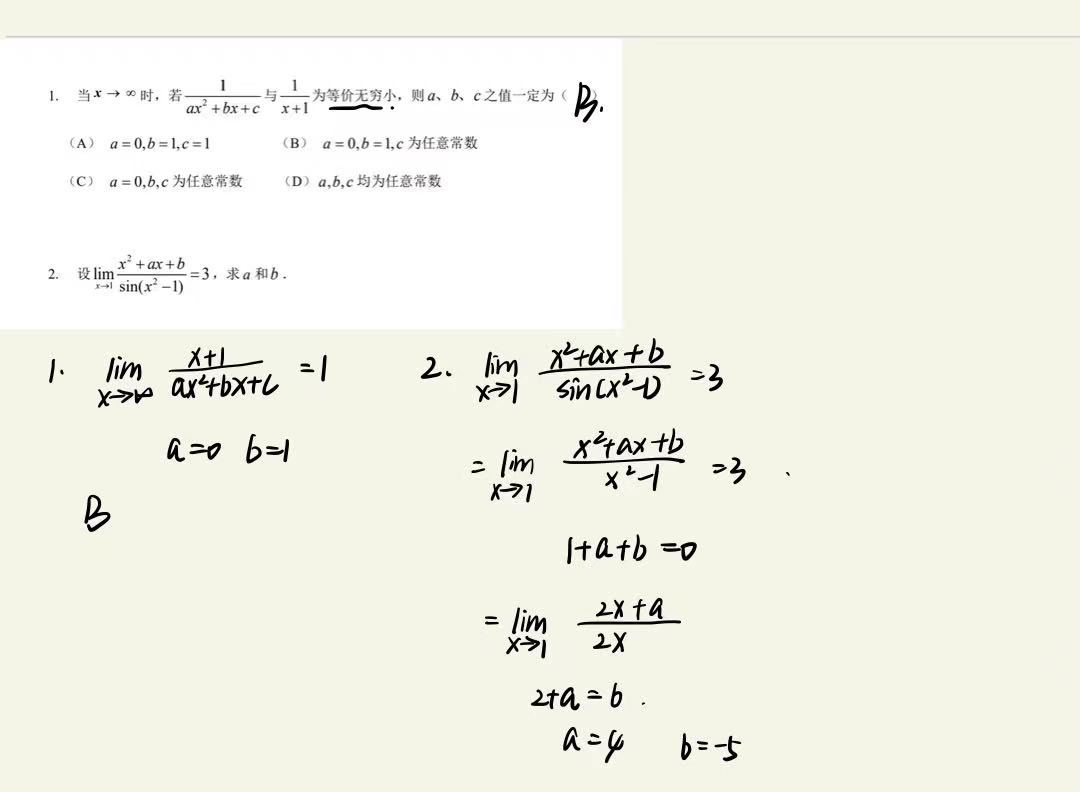 1. 当 x → ∞ 时，若 1/(ax²+bx+c) 与 1/(x+1) 为等价无穷小，则 a、b、c 之值一定为（ B. ）
（A） a = 0, b = 1, c = 1 （B） a = 0, b = 1, c 为任意常数
（C） a = 0, b, c 为任意常数 （D） a, b, c 均为任意常数
2. 设 lim x→1 (x²+ax+b)/sin(x²−1) = 3，求 a 和 b．
1. lim x→∞ (x+1)/(ax²+bx+c) = 1
a=0 b=1
B
2. lim x→1 (x²+ax+b)/sin(x²-1) = 3
= lim x→1 (x²+ax+b)/(x²-1) = 3
1+a+b=0
= lim x→1 (2x+a)/(2x)
2+a=6.
a=4 b=-5